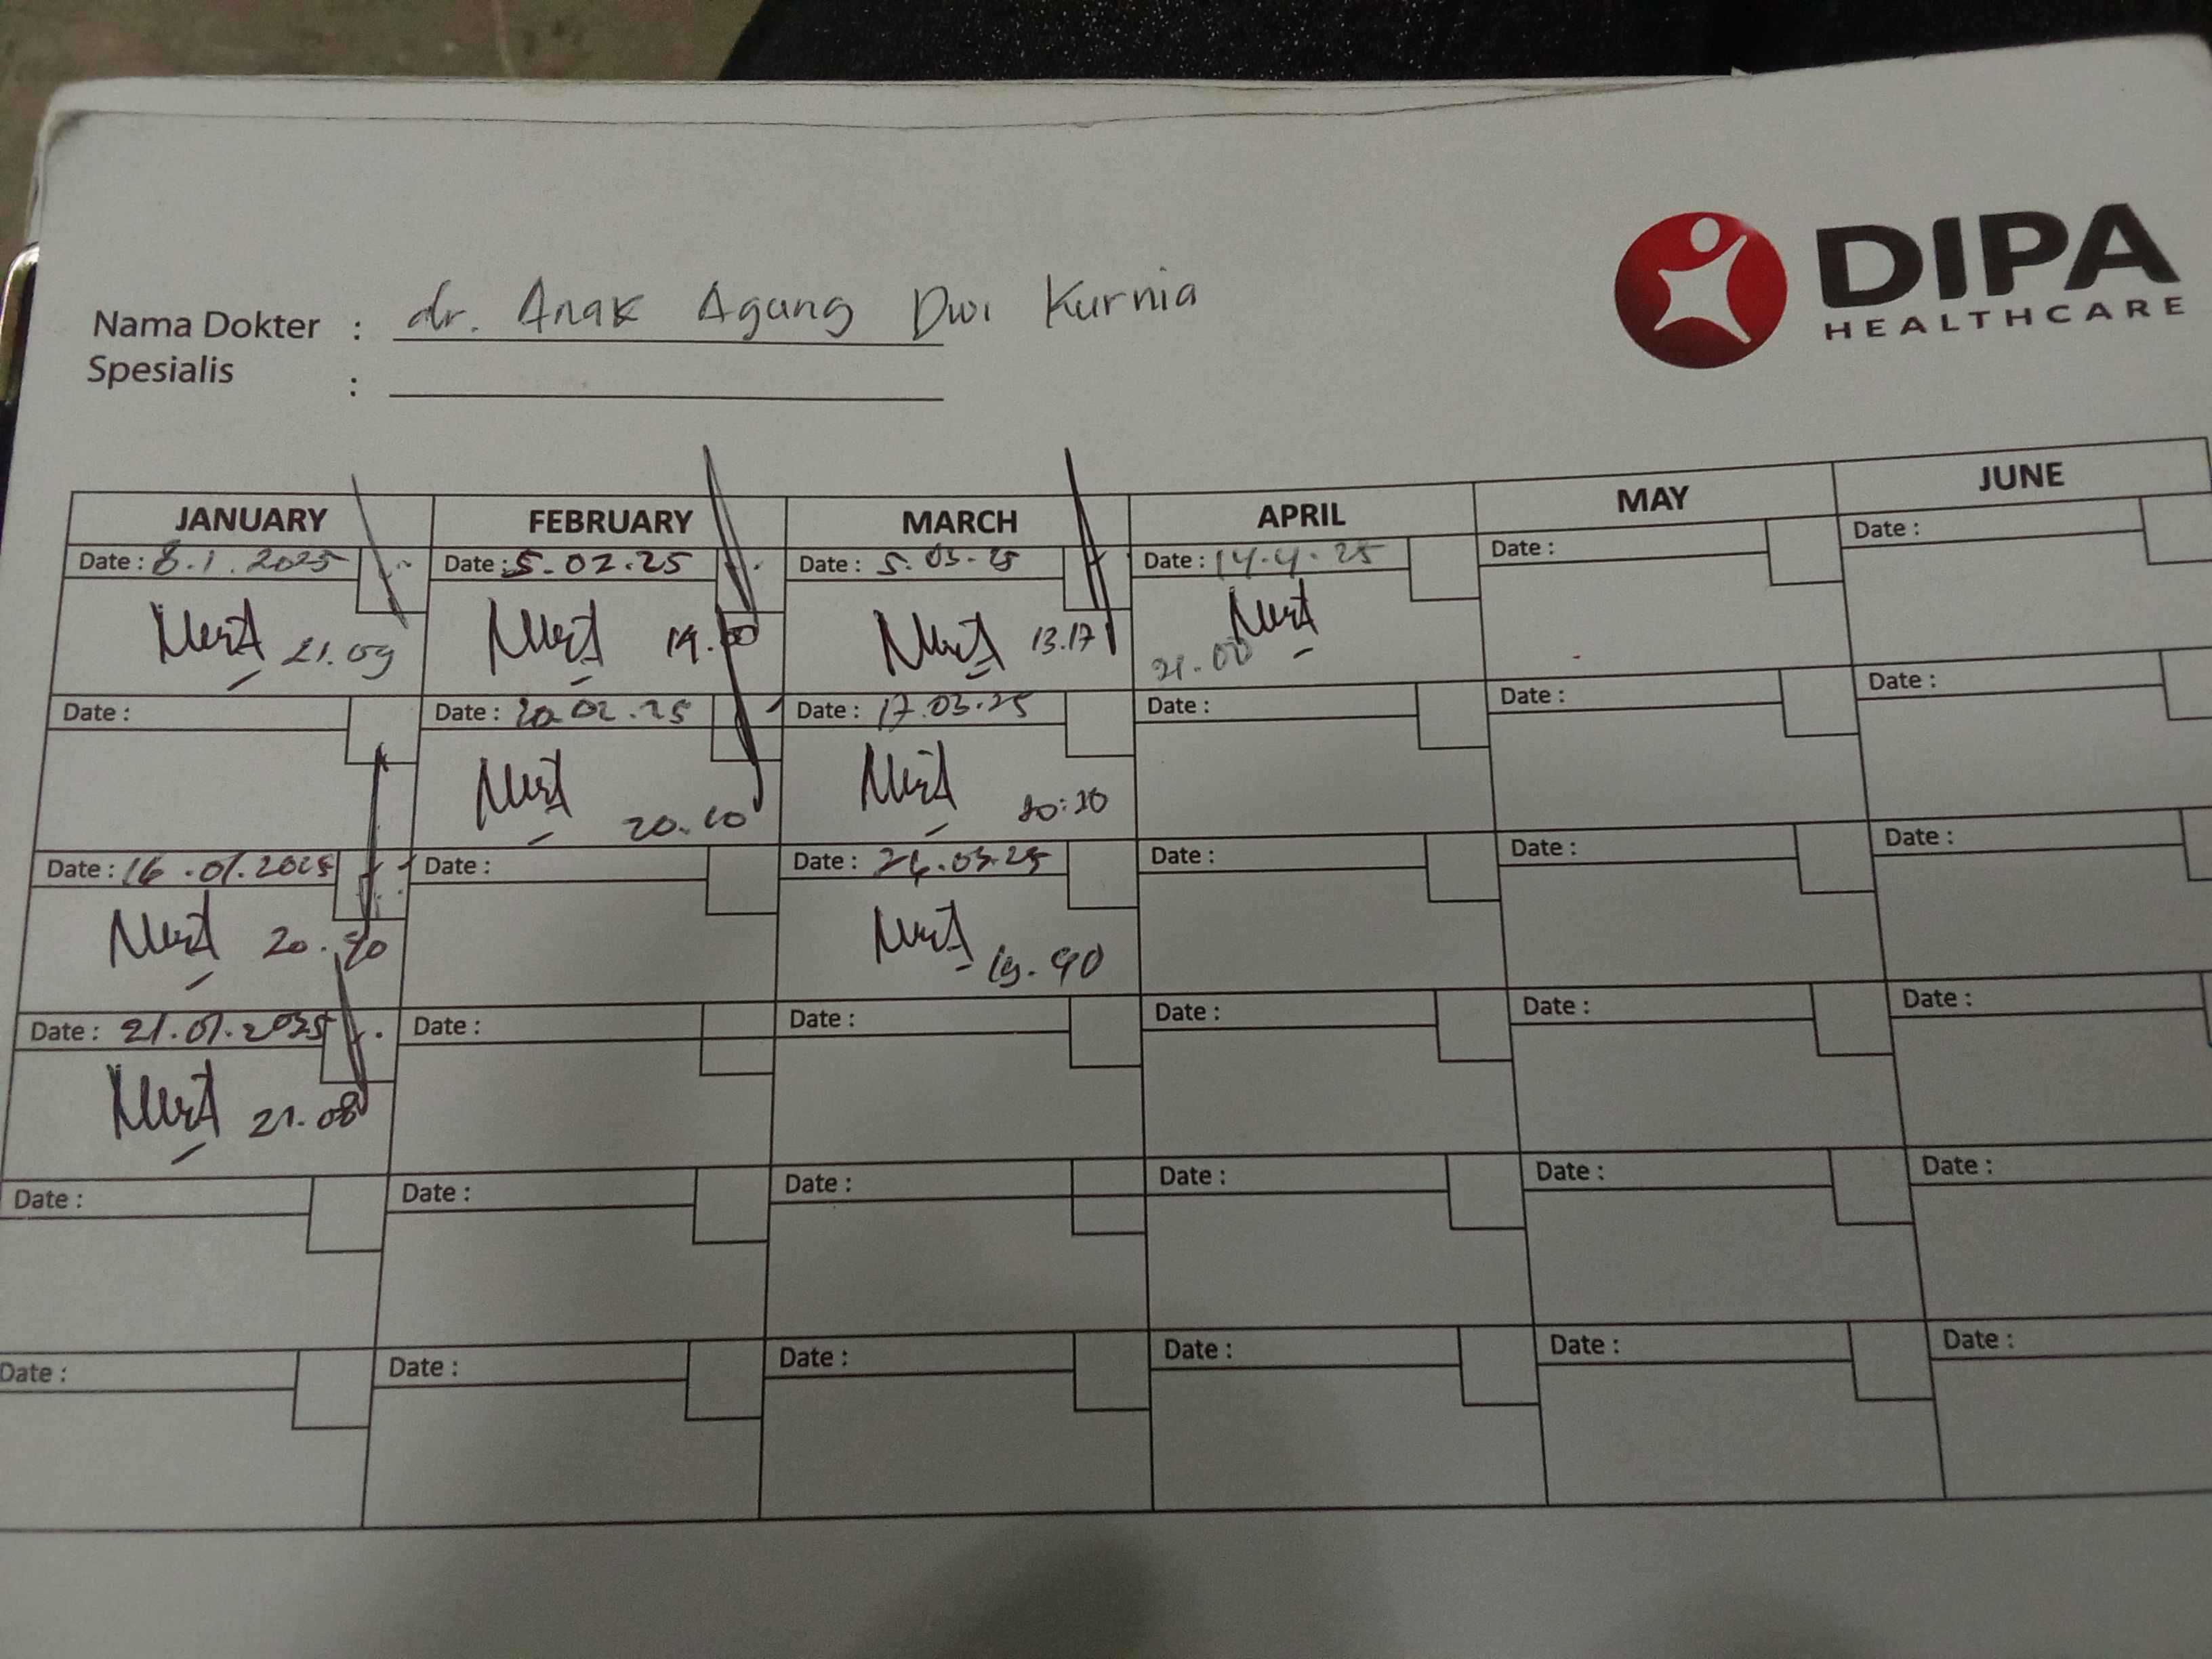 DIPA
HEALTHCARE
Nama Dokter : dr. Anak Agung Dwi Kurnia
Spesialis :
JANUARY FEBRUARY MARCH APRIL MAY JUNE
Date : 8.1.2025 Date : 5.02.25 Date : 5.03.25 Date : 14.4.25 Date : Date :
21.09 19.00 13.17 21.00
Date : Date : 20.02.25 Date : 17.03.25 Date : Date : Date :
20.10
Date : 16.01.2025 Date : Date : 26.03.25 Date : Date : Date :
Date : 21.01.2025 Date : Date : Date : Date : Date :
21.08
Date : Date : Date : Date : Date : Date :
Date : Date : Date : Date : Date : Date :